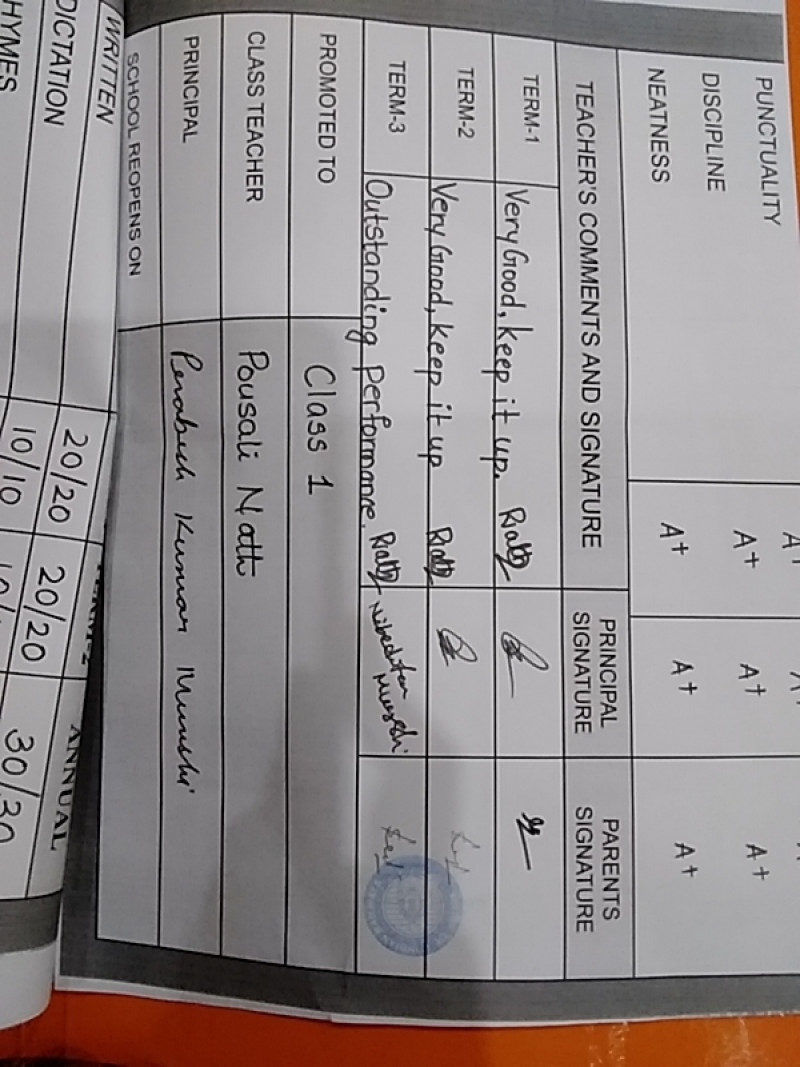 PUNCTUALITY
DISCIPLINE A+ A+ A+
NEATNESS A+ A+ A+
TEACHER'S COMMENTS AND SIGNATURE PRINCIPAL SIGNATURE PARENTS SIGNATURE
TERM-1 Very Good, keep it up.
TERM-2 Very Good, keep it up
TERM-3 Outstanding performance.
PROMOTED TO Class 1
CLASS TEACHER Pousali Nath
PRINCIPAL Kumar Munshi
SCHOOL REOPENS ON
WRITTEN ANNUAL
DICTATION 20/20 20/20 30/30
HYMES 10/10